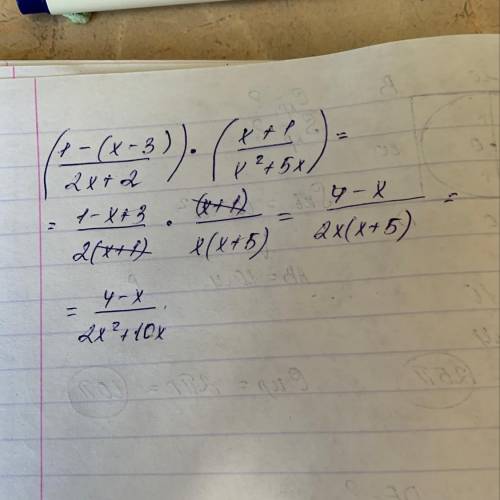 ((1-(x-3))/(2x+2)) · ((x+1)/(x²+5x)) =
= (1-x+3)/(2(x+1)) · (x+1)/(x(x+5)) = (4-x)/(2x(x+5)) =
= (4-x)/(2x²+10x)